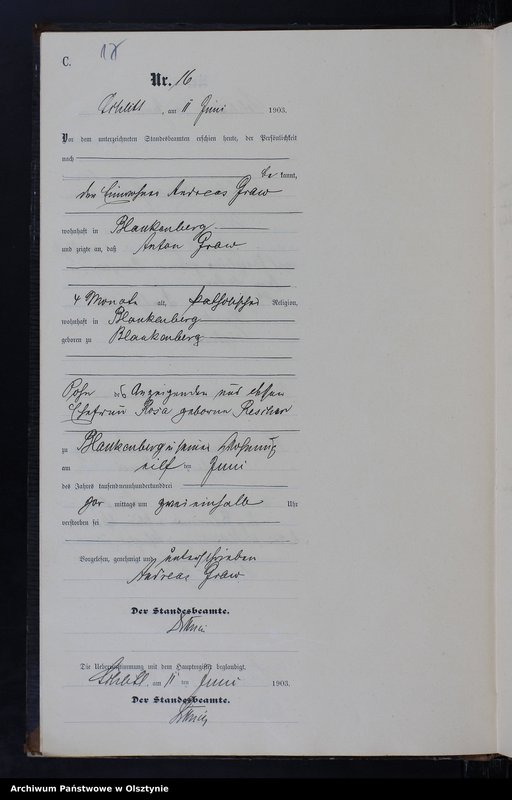 C.
Nr. 16
am 11 Juni 1903.
Vor dem unterzeichneten Standesbeamten erschien heute, der Persönlichkeit
nach
be kannt,
den Einwohner Andreas Graw
wohnhaft in Blankenberg
und zeigte an, daß Anton Graw
4 Monate alt, katholischer Religion,
wohnhaft in Blankenberg
geboren zu Blankenberg
Sohn des Anzeigenden und dessen
Ehefrau Rosa geborene
zu Blankenberg in seiner Wohnung
am eilf ten Juni
des Jahres tausendneunhundertunddrei
vor mittags um zwei einhalb Uhr
verstorben sei
Vorgelesen, genehmigt und unterschrieben
Andreas Graw
Der Standesbeamte.
Die Uebereinstimmung mit dem Hauptregister beglaubigt.
am 11 ten Juni 1903.
Der Standesbeamte.
Archiwum Państwowe w Olsztynie